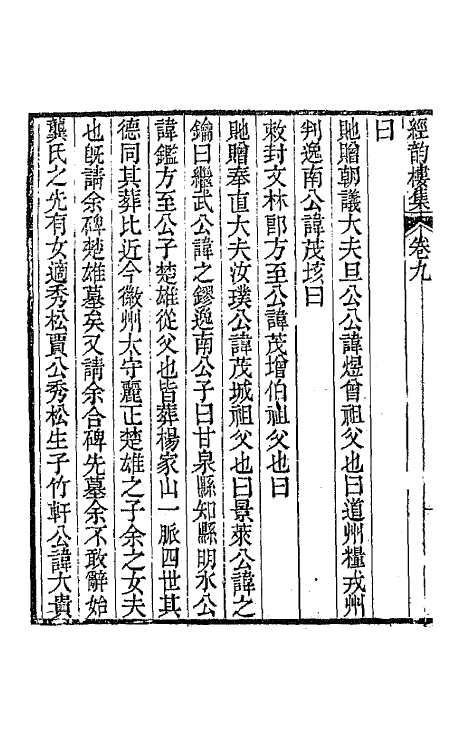 經韵樓集 卷九
曰
貤贈朝議大夫旦公公諱煜曾祖父也曰道州糧戎州
判逸南公諱茂垓曰
敕封文林郎方至公諱茂增伯祖父也曰
貤贈奉直大夫汝璞公諱茂城祖父也曰景萊公諱之
鑰曰繼武公諱之鏐逸南公子曰甘泉縣知縣明永公
諱鑑方至公子楚雄從父也皆葬楊家山一脈四世其
德同其葬比近今徽州太守麗正楚雄之子余之女夫
也旣請余碑楚雄墓矣又請余合碑先墓余不敢辭始
龔氏之先有女適秀松賈公秀松生子竹軒公諱大貴